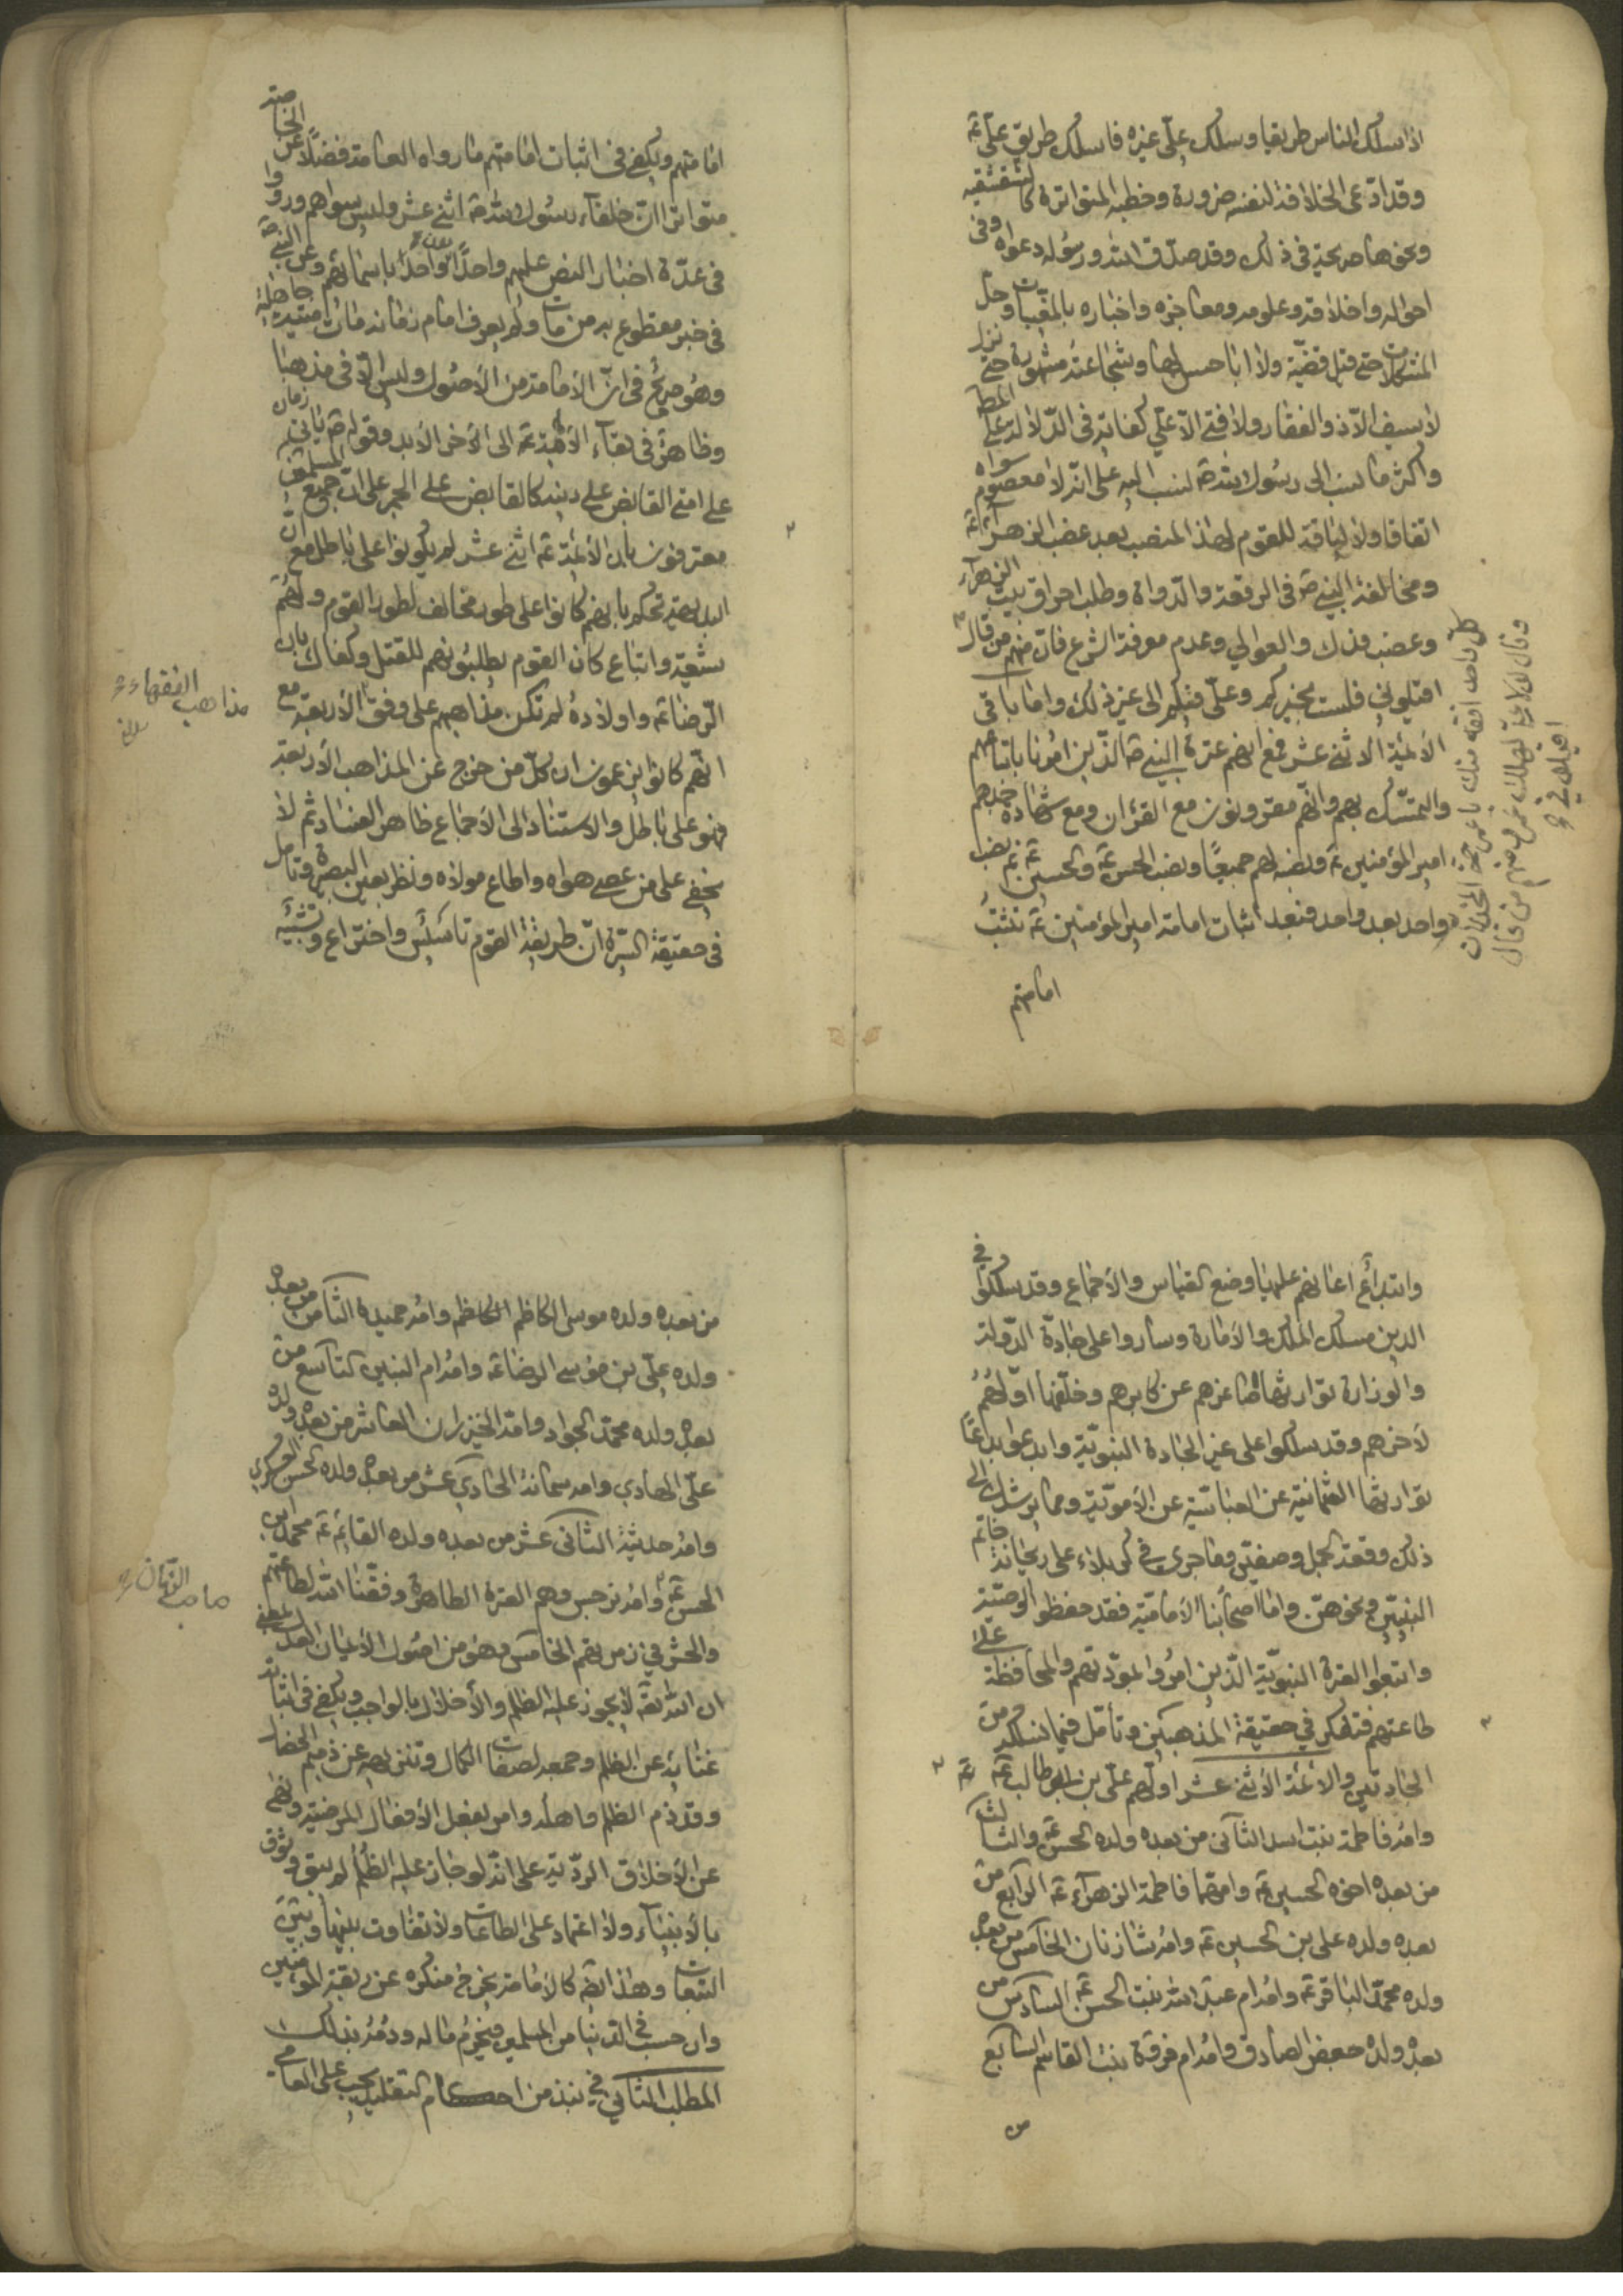 اذا سلك الناس طريقا وسلك علّي غيره فاسلك طريق علّي ع
وقد ادّعى الخلافة لنفسه ضرورة وخطبه المتواترة كالشقشقيه
ونحوها صريحة في ذلك وقد صدّق الله ورسوله دعواه وفي
احواله واخلاقه وعلومه ومعاجزه واخباره بالمغيّبات وحل
المشكلات حتى قيل قضيّة ولا ابا حسن لها وشجاعته مشهورة حتى نزل
لا سيف الّا ذو الفقار ولا فتى الّا علّي كفاية في الدّلالة على المط
واكثر ما نسب الى رسول الله ص نسب اليه على انّه لا معصوم سواه
اتفاقا ولا لياقة للقوم لهذا المنصب بعد غصب الزهرآء ع
ومخالفة النبي ص في الرقعة والدّواة وطلب احراق بيت الزهرآء
وغصب فدك والعوالي وعدم معرفة الشرع فانّ منهم من قال
اقيلوني فلست بخيركم وعلّي فيكم الى غير ذلك واما باقي
الائمّة الاثنى عشر فمع انهم عترة النبي ص الّذين امرنا باتباعهم
والتمسّك بهم وانّهم مقرونون مع القرءان ومع شهادة جدهم
امير المؤمنين ع ونصبه لهم جميعًا ونصب الحسن ع والحسين ع ثم نصب
واحد بعد واحد فبعد اثبات امامة امير المؤمنين ع تثبت
امامتهم
كل واحد افقه منك يا عمر حتى المخدّرات
وقال لولا علي لهلك عمر ومنهم من قال
اقيلوني
امامتهم ويكفي في اثبات امامتهم ما رواه العامة فضلًا عن الخاصة
متواترا انّ خلفآء رسول الله ص اثني عشر وليس سواهم ورووا
في عدّة اخبار النص عليهم واحدًا بعد واحد باسمائهم وعن النبي ص
في خبر مقطوع به من مات ولم يعرف امام زمانه مات ميتة جاهلية
وهو صريح في انّ الأمامة من الأصول وليس الّا في مذهبنا
وظاهر في بقآء الأئمّة ع الى الأخر الأبد وقوله ص ياتي زمان
على امتي القابض على دينه كالقابض على الجمر على انّ جميع المسلمين
معترفون بان الأئمّة ع اثني عشر لم يكونوا على باطل مع انّ
البديهة تحكم بانهم كانوا على طور مخالف لطور القوم ولهم
شيعة واتباع كان القوم يطلبونهم للقتل وكفاك بان
الرّضا ع واولاده لم تكن مذاهبهم على وفق الأربعة مع
انّهم كانوا يزعمون ان كلّ من خرج عن المذاهب الأربعة
فهو على باطل والاستناد الى الأجماع ظاهر الفساد ثم لا
يخفى على من عصى هواه واطاع مولاه ونظر بعين البصيرة وتامل
في حقيقة السّيرة انّ طريقة القوم تأسيس واختراع وتشبّه
مذاهب الفقهاء
وابتداع اعانهم عليها وضع القياس والأجماع وقد سلكوا في
الدين مسلك الملك والأمارة وساروا على جادّة الدّولة
والوزارة توارثها صاغرهم عن كابرهم وخلّفها اوّلهم
لأخرهم وقد سلكوا على غير الجادة النبويّة وابدعوا بدعًا
توارثها العثمانيّة عن العباسيّة عن الأمويّة ومما يرشدك الى
ذلك وقعة الجمل وصفين وما جرى في كربلاء على ريحانة خاتم
النبيّين ونحوهنّ واما اصحابنا الأماميّة فقد حفظوا الوصيّة
واتبعوا العترة النبويّة الّذين امروا بمودّتهم والمحافظة على
طاعتهم فتفكّر في حقيقة المذهبين وتأمّل فيما نسلكه من
الجادتين والأئمّة الأثنى عشر اولّهم علّي بن ابي طالب ع
وامّه فاطمة بنت اسد الثاني من بعده ولده الحسن ع والثالث
من بعده اخوه الحسين ع وامهما فاطمة الزهرآء ع الرابع من
بعده ولده علي بن الحسين ع وامّه شاه زنان الخامس من بعده
ولده محمّد الباقر ع وامّه ام عبد الله بنت الحسن ع السادس من
بعده ولده جعفر الصادق وامّه ام فروة بنت القاسم السابع
من
من بعده ولده موسى الكاظم وامّه حميدة الثامن من بعده
ولده علّي بن موسى الرضا ع وامّه ام البنين التاسع من
بعده ولده محمّد الجواد وامّه الخيزران العاشر من بعده ولده
علّي الهادي وامه سمانة الحادي عشر من بعده ولده الحسن العسكري
وامّه حديثة الثاني عشر من بعده ولده القائم ع محمد ابن
الحسن ع وامّه نرجس وهم العترة الطاهرة وفّقنا الله لطاعتهم
والحشر في زمرتهم الخامس وهو من اصول الأيمان العدل بمعنى
ان الله تعالى لا يجوز عليه الظلم والأخلال بالواجب ويكفي في اثباته
غنائه عن الظلم وجمعه لصفات الكمال وتنزيهه عن ذميم الخصال
وقد ذم الظلم واهله وامر بفعل الأفعال المرضيّة ونهى
عن الأخلاق الرديّة على انّه لو جاز عليه الظلم لم يبق وثوق
بالأنبيآء ولا اعتماد على الطاعات ولا تفاوت بينها وبين
التبعات وهذا ايضا كالأمامة يخرج منكره عن ربقة المؤمنين
وان حسب في الدنيا من المسلمين فيحرم ماله ودمه بذلك
المطلب الثاني في نبذ من احكام التقليد يجب على العامي